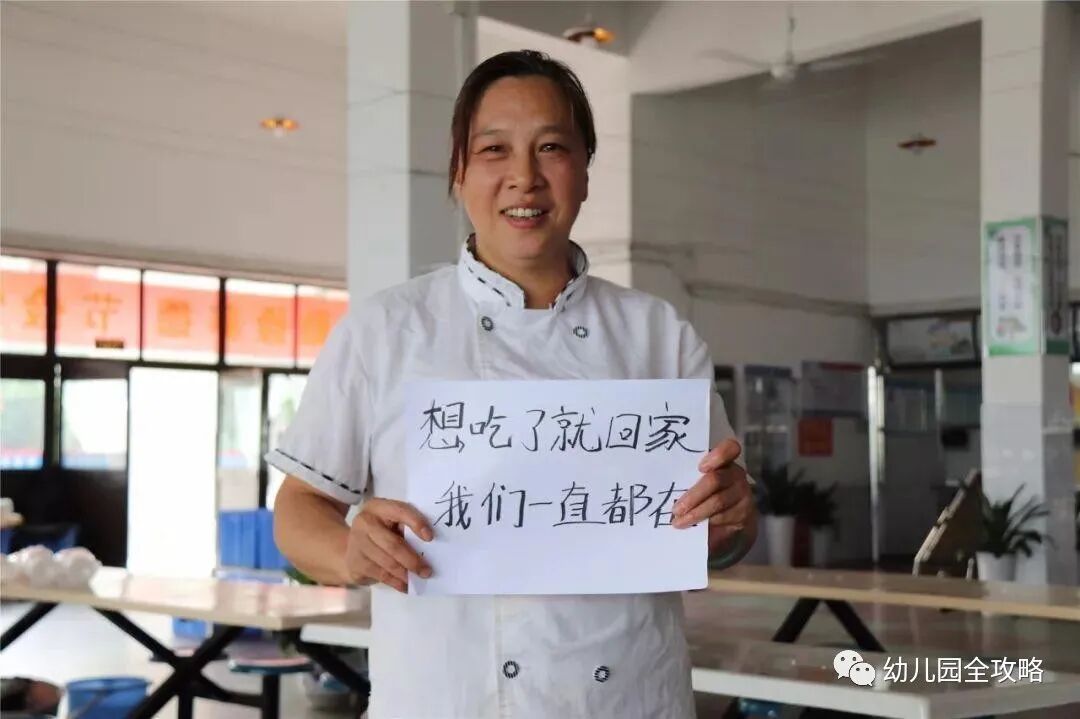 想吃了就回家
我们一直都在
幼儿园全攻略